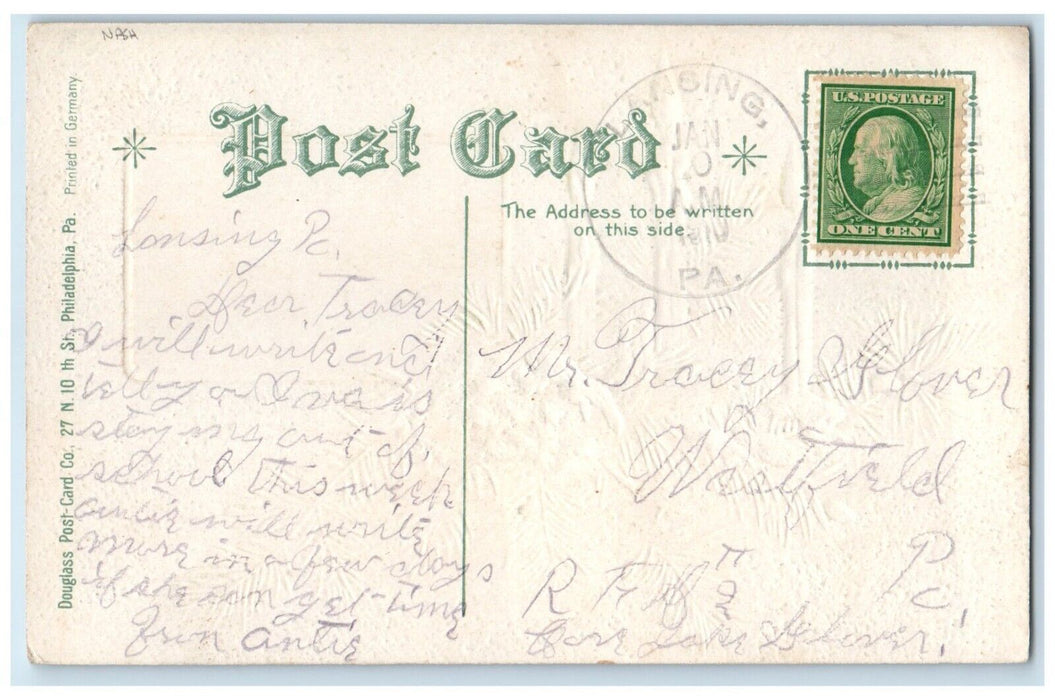 NASH
Post Card
Printed in Germany.
Douglass Post-Card Co., 27 N. 10 th St., Philadelphia, Pa.
The Address to be written
on this side.
LANSING,
JAN
A.M.
1910
PA.
U.S. POSTAGE
ONE CENT
Lonsing Pa.
Dear Tracey
I will write and
tell you I was
staying out of
school this week
antie will write
more in a few days
if she can get time
From antie
Mr. Tracey Glover
Westfield
Pa.
R F D # 2
Care Jake Glover